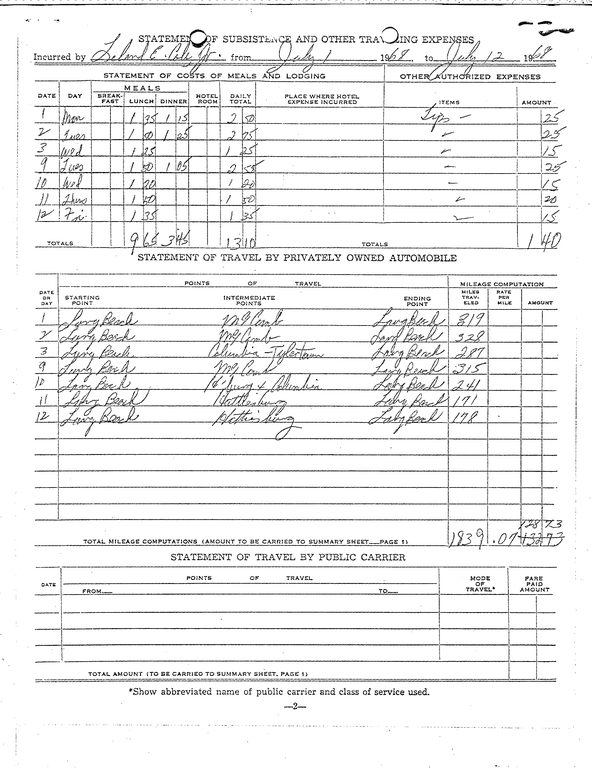 STATEMENT OF SUBSISTENCE AND OTHER TRAVELING EXPENSES
Incurred by Leland E. Cole Jr. from July 1 1968 to July 12 1968
STATEMENT OF COSTS OF MEALS AND LODGING OTHER AUTHORIZED EXPENSES
DATE DAY MEALS BREAK-FAST LUNCH DINNER HOTEL ROOM DAILY TOTAL PLACE WHERE HOTEL EXPENSE INCURRED ITEMS AMOUNT
1 Mon 1 35 1 15 2 50 Tips — 25
2 Tues 1 50 1 25 2 75 25
3 Wed 1 25 1 25 15
9 Tues 1 50 1 05 2 55 — 25
10 Wed 1 20 1 20 — 15
11 Thurs 1 50 1 50 20
12 Fri 1 35 1 35 15
TOTALS 9 65 3 45 13 10 TOTALS 1 40
STATEMENT OF TRAVEL BY PRIVATELY OWNED AUTOMOBILE
POINTS OF TRAVEL MILEAGE COMPUTATION
DATE OR DAY STARTING POINT INTERMEDIATE POINTS ENDING POINT MILES TRAV-ELED RATE PER MILE AMOUNT
1 Long Beach McComb Long Beach 319
2 Long Beach McComb Long Beach 328
3 Long Beach Columbia - Tylertown Long Beach 287
9 Long Beach McComb Long Beach 315
10 Long Beach H'burg & Columbia Long Beach 241
11 Long Beach Hattiesburg Long Beach 171
12 Long Beach Hattiesburg Long Beach 178
128 73
TOTAL MILEAGE COMPUTATIONS (AMOUNT TO BE CARRIED TO SUMMARY SHEET—PAGE 1) 1839 .07 132 73
STATEMENT OF TRAVEL BY PUBLIC CARRIER
DATE POINTS OF TRAVEL MODE OF TRAVEL* FARE PAID AMOUNT
FROM— TO—
TOTAL AMOUNT (TO BE CARRIED TO SUMMARY SHEET, PAGE 1)
*Show abbreviated name of public carrier and class of service used.
—2—